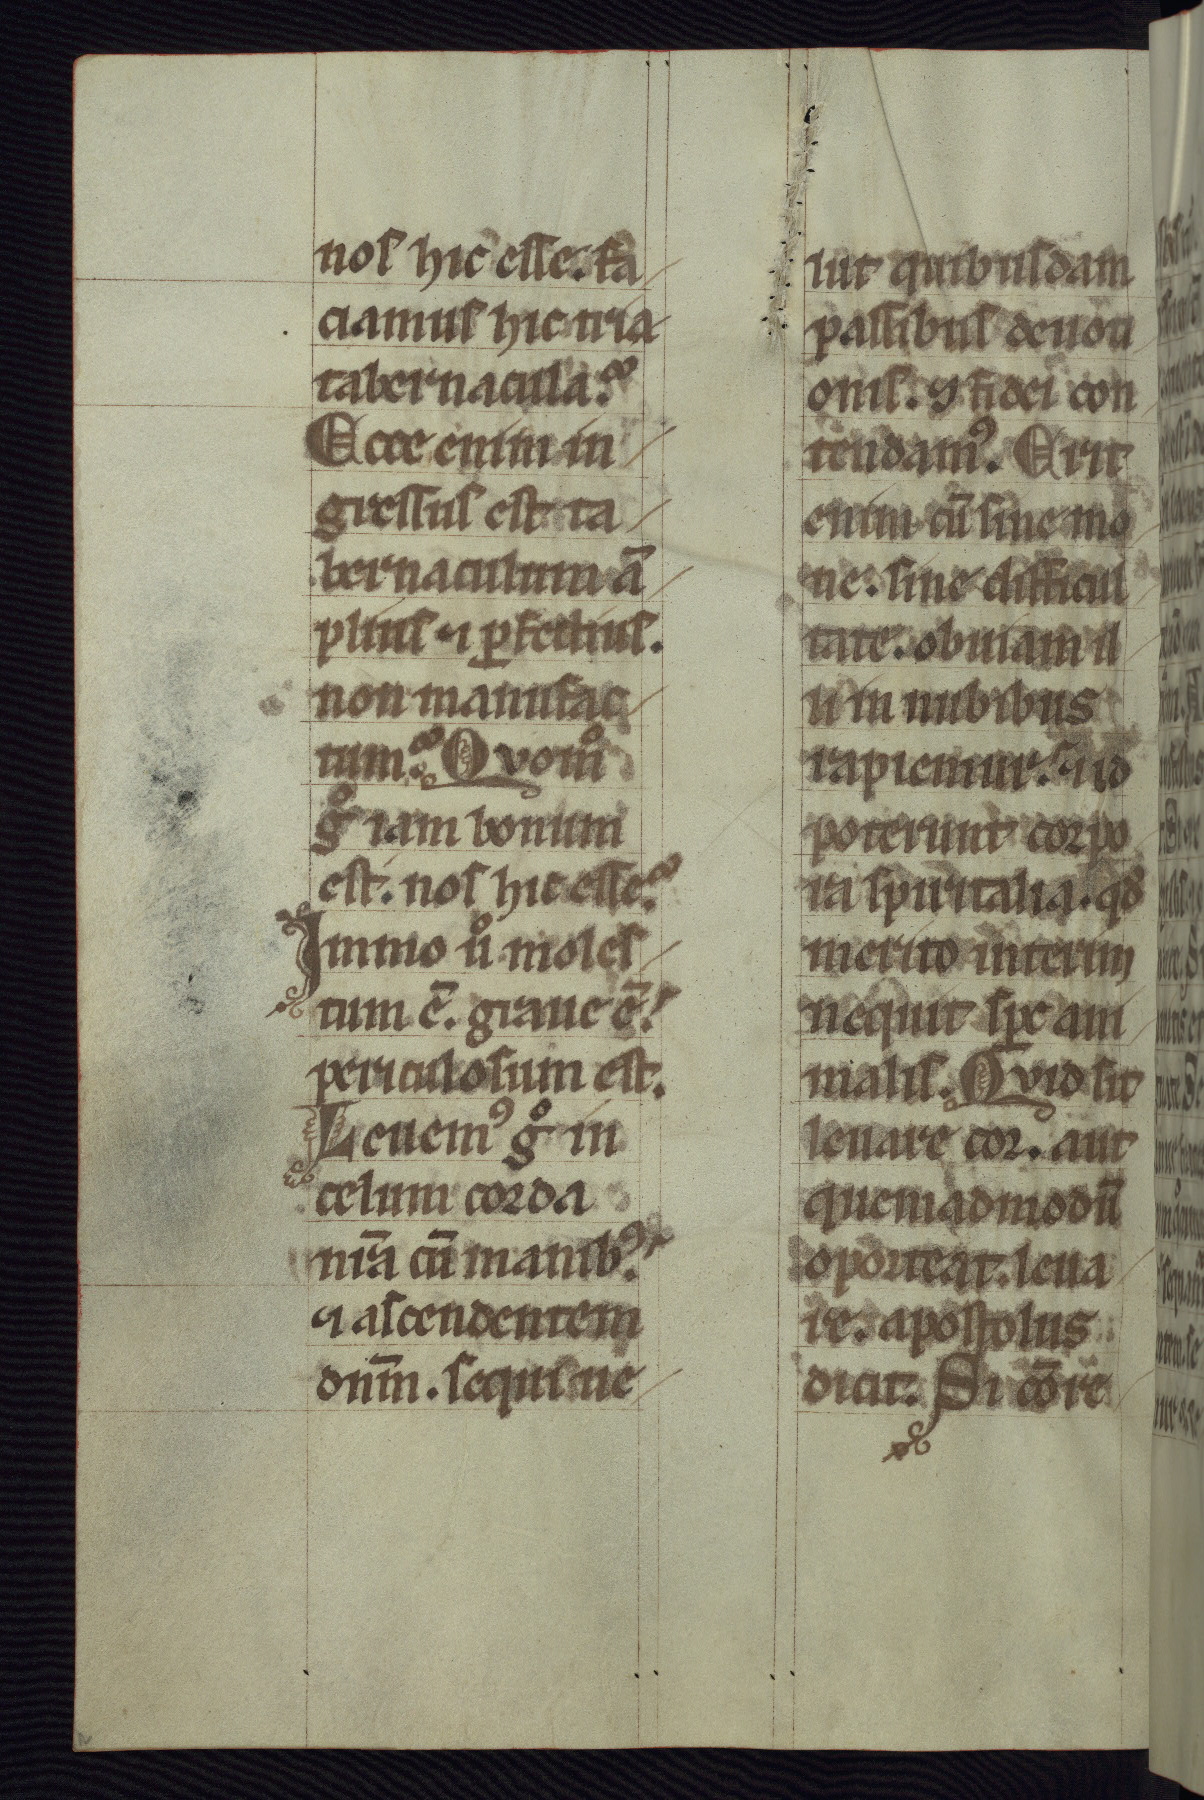 nos hic esse. fa
ciamus hic tria
tabernacula.
Ecce enim in
gressus est ta
bernaculum ā
plius ⁊ ꝑfectius.
non manufac
tum. Quomͦ
gͦ iam bonum
est. nos hic esse.
Immo uͦ moles
tum ē. graue ē.
periculosum est.
Leuemꝰ gͦ in
celum corda
nr̄a cū manibꝰ.
⁊ ascendentem
dnm̄. sequi ue
lut quibusdam
passibus deuoti
onis. ⁊ fidei con
tendamꝰ. Erit
enim cū sine mo
ne. sine difficul
tate. obuiam il
li in nubibus
rapiemur. ⁊ id
poterunt corpo
ra spiritalia. qd̄
merito interim
nequit spc ani
malis. Quid sit
leuare cor. aut
quemadmodū
oporteat. leua
re. apostolus
dicit. Si cōre